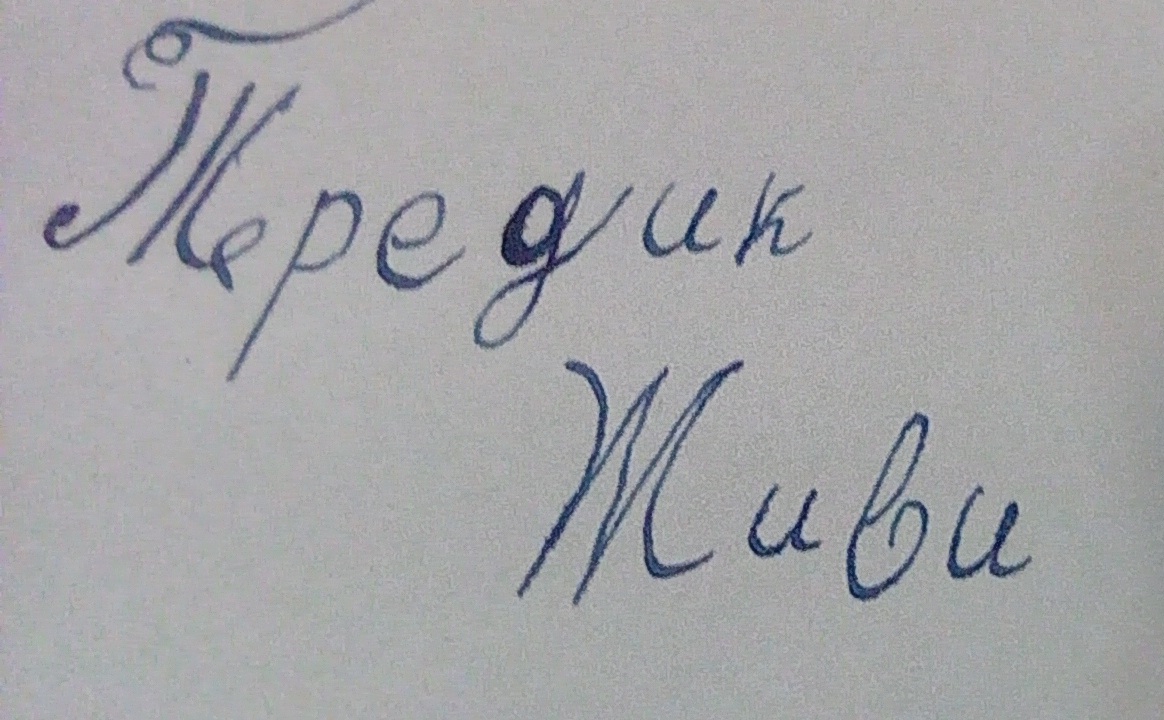 Тредик
Живи